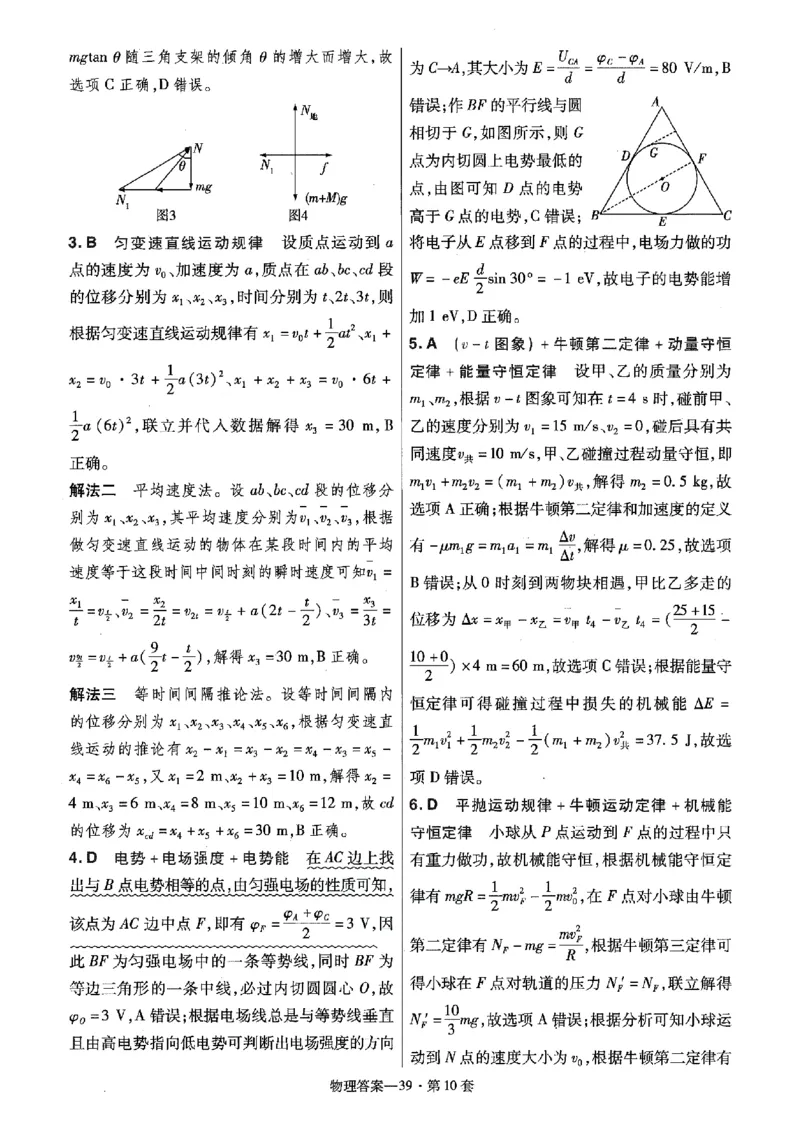 mgtan θ随三角支架的倾角θ的增大而增大,故
选项C正确,D错误。
N
θ
mg
N₁
图3
N地
N₁
f
(m+M)g
图4
3.B 匀变速直线运动规律 设质点运动到a
点的速度为v₀、加速度为a,质点在ab、bc、cd段
的位移分别为x₁、x₂、x₃,时间分别为t、2t、3t,则
根据匀变速直线运动规律有x₁=v₀t+1/2at²、x₁+
x₂=v₀·3t+1/2a(3t)²、x₁+x₂+x₃=v₀·6t+
1/2a(6t)²,联立并代入数据解得x₃=30 m,B
正确。
解法二 平均速度法。设ab、bc、cd段的位移分
别为x₁、x₂、x₃,其平均速度分别为v̄₁、v̄₂、v̄₃,根据
做匀变速直线运动的物体在某段时间内的平均
速度等于这段时间中间时刻的瞬时速度可知v̄₁=
x₁/t=v_{t/2}、v̄₂=x₂/2t=v_{2t}=v_{t/2}+a(2t-t/2)、v̄₃=x₃/3t=
v_{9t/2}=v_{t/2}+a(9/2t-t/2),解得x₃=30 m,B正确。
解法三 等时间间隔推论法。设等时间间隔内
的位移分别为x₁、x₂、x₃、x₄、x₅、x₆,根据匀变速直
线运动的推论有x₂-x₁=x₃-x₂=x₄-x₃=x₅-
x₄=x₆-x₅,又x₁=2 m、x₂+x₃=10 m,解得x₂=
4 m、x₃=6 m、x₄=8 m、x₅=10 m、x₆=12 m,故cd
的位移为x_{cd}=x₄+x₅+x₆=30 m,B正确。
4.D 电势+电场强度+电势能 在AC边上找
出与B点电势相等的点,由匀强电场的性质可知,
该点为AC边中点F,即有φ_F=(φ_A+φ_C)/2=3 V,因
此BF为匀强电场中的一条等势线,同时BF为
等边三角形的一条中线,必过内切圆圆心O,故
φ_O=3 V,A错误;根据电场线总是与等势线垂直
且由高电势指向低电势可判断出电场强度的方向
为C→A,其大小为E=U_{CA}/d=(φ_C-φ_A)/d=80 V/m,B
错误;作BF的平行线与圆
相切于G,如图所示,则G
点为内切圆上电势最低的
点,由图可知D点的电势
高于G点的电势,C错误;
A
D
G
F
O
B
E
C
将电子从E点移到F点的过程中,电场力做的功
W=-eE d/2 sin 30°=-1 eV,故电子的电势能增
加1 eV,D正确。
5.A (v-t图象)+牛顿第二定律+动量守恒
定律+能量守恒定律 设甲、乙的质量分别为
m₁、m₂,根据v-t图象可知在t=4 s时,碰前甲、
乙的速度分别为v₁=15 m/s、v₂=0,碰后具有共
同速度v共=10 m/s,甲、乙碰撞过程动量守恒,即
m₁v₁+m₂v₂=(m₁+m₂)v共,解得m₂=0.5 kg,故
选项A正确;根据牛顿第二定律和加速度的定义
有-μm₁g=m₁a₁=m₁Δv/Δt,解得μ=0.25,故选项
B错误;从0时刻到两物块相遇,甲比乙多走的
位移为Δx=x甲-x乙=v̄甲t₄-v̄乙t₄=((25+15)/2-
(10+0)/2)×4 m=60 m,故选项C错误;根据能量守
恒定律可得碰撞过程中损失的机械能ΔE=
1/2m₁v₁²+1/2m₂v₂²-1/2(m₁+m₂)v共²=37.5 J,故选
项D错误。
6.D 平抛运动规律+牛顿运动定律+机械能
守恒定律 小球从P点运动到F点的过程中只
有重力做功,故机械能守恒,根据机械能守恒定
律有mgR=1/2mv_F²-1/2mv₀²,在F点对小球由牛顿
第二定律有N_F-mg=mv_F²/R,根据牛顿第三定律可
得小球在F点对轨道的压力N_F′=N_F,联立解得
N_F′=10/3mg,故选项A错误;根据分析可知小球运
动到N点的速度大小为v₀,根据牛顿第二定律有
物理答案—39·第10套